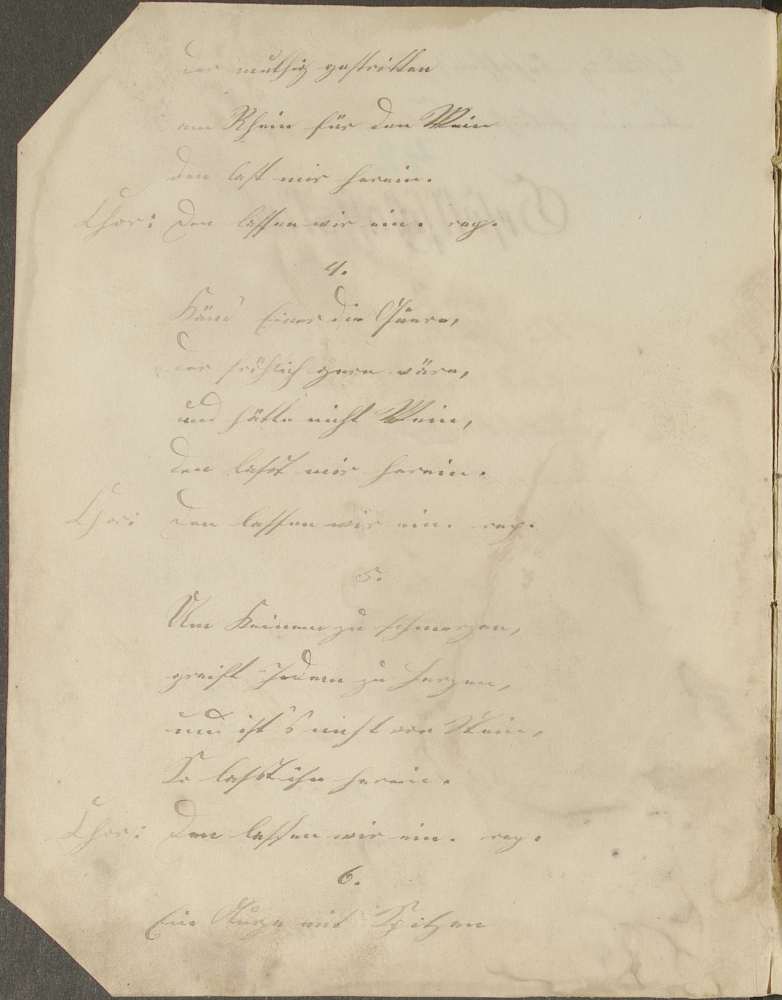 der muthig gestritten
am Rhein für den Wein
den laßt mir herein.
Chor: Den lassen wir ein. rep.
4.
Käm' Einer die Quere,
der fröhlich gern wäre,
und hätte nicht Wein,
den laßt mir herein.
Chor: Den lassen wir ein. rep.
5.
Um Keinen zu schmerzen,
greift Jedem zu Herzen,
und ist's nicht von Stein,
So laßt ihn herein.
Chor: Den lassen wir ein. rep.
6.
Ein mit Spitzen